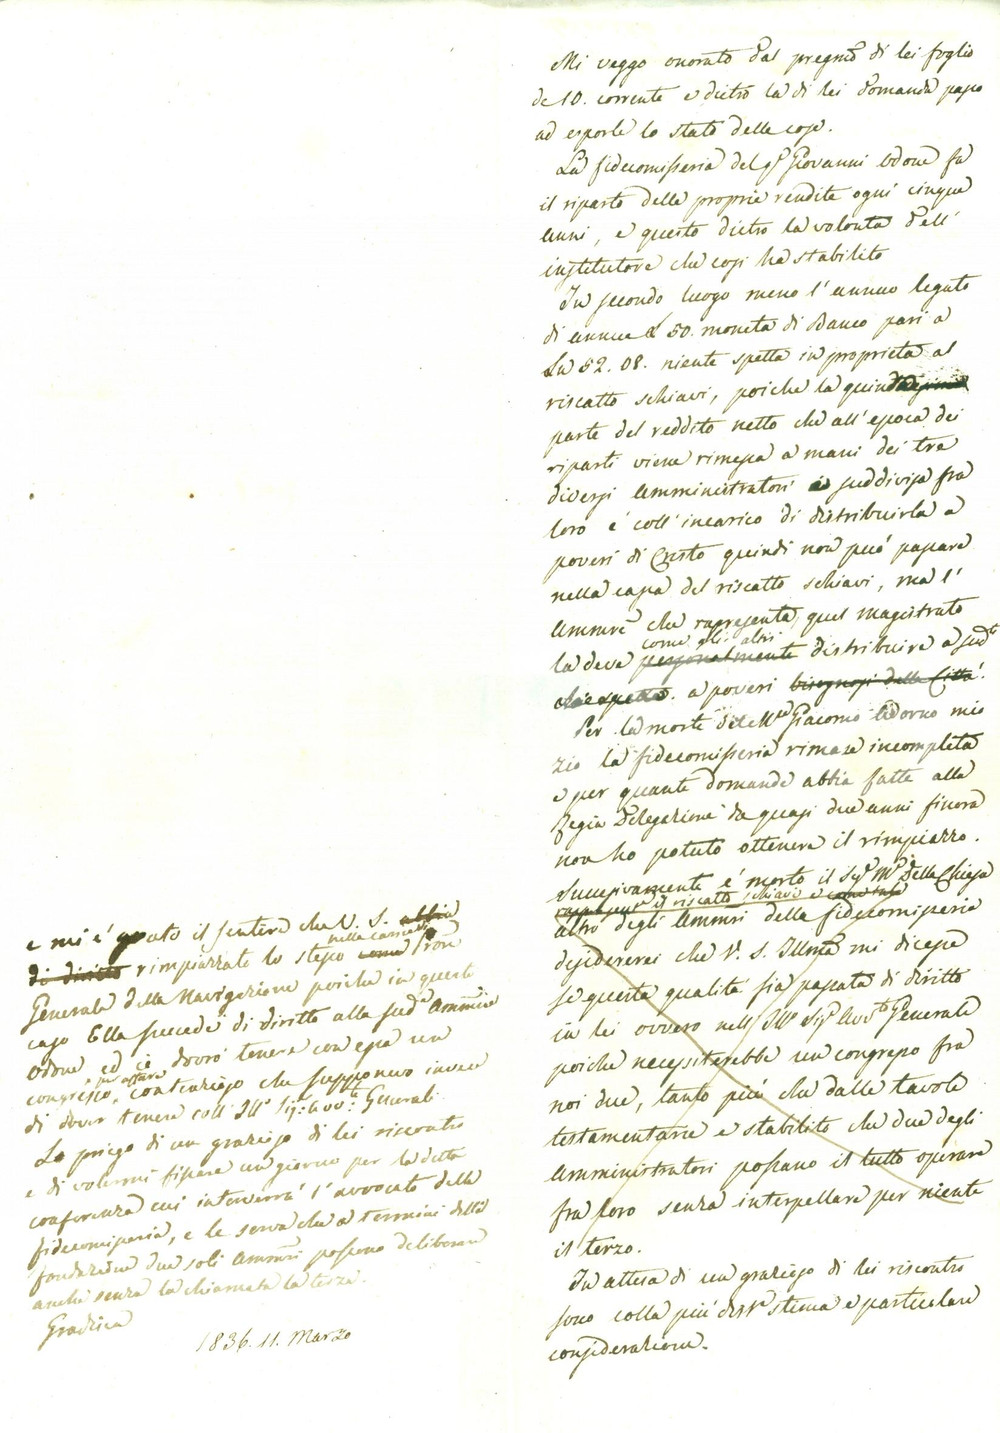 Mi veggo onorato dal pregmo di lei foglio
de 10. corrente e dietro la di lei domanda passo
ad esporle lo stato delle cose.
La fidecomisseria del q. Giovanni Odone fa
il riparto delle proprie rendite ogni cinque
anni, e questo dietro la volontà dell'
institutore che così ha stabilito
In secondo luogo meno l'annuo legato
di annue £ 50. moneta di Banco pari a
Ln 52. 08. niente spetta in proprietà al
riscatto schiavi, poiche la
parte del reddito netto che all'epoca dei
riparti viene rimessa a mani dei tre
diversi amministratori è suddivisa fra
loro e coll'incarico di distribuirla a
poveri di Cristo quindi non può passare
nella cassa del riscatto schiavi, ma l'
Ammre che rapresenta quel magistrato
come gli altri
la deve personalmente distribuire a sudti
a poveri bisognosi della Città.
Per la morte del Mse Giacomo Adorno mio
zio la fidecomisseria rimase incompleta
e per quante domande abbia fatte alla
Regia Delegazione da quasi due anni finora
non ho potuto ottenere il rimpiazzo.
Successivamente è morto il Sigr Mse Della Chiesa
il riscatto schiavi e come tale
altro degli Ammri della fidecomisseria
desidererei che V. S. Illma mi dicesse
se questa qualità sia passata di diritto
in lei ovvero nell'Illo Sigr Avvto Generale
poiche necessiterebbe un congresso fra
noi due, tanto più che dalle tavole
testamentarie e stabilito che due degli
Amministratori possano il tutto operare
fra loro senza interpellare per niente
il terzo.
In attesa di un grazioso di lei riscontro
sono colla più dista stima e particolare
considerazione.
e mi è grato il sentire che V. S. abbia
nella carica
di diritto rimpiazzato lo stesso come
Generale della Navigazione poiche in questo
caso Ella succede di diritto alla sudta Ammne
Odone, ed è dovrò tenere con essa un
per affare
congresso, contrario che supponevo invece
di dover tenere coll'Illo Sigr Avvto Generale
La priego di un grazioso di lei riscontro
e di volermi fissare un giorno per la detta
conferenza cui interverrà l'avvocato della
fidecomisseria, e le serva che a termini della
fondazione due soli Ammri possono deliberare
anche senza la chiamata la terza.
Gradisca
1836. 11. Marzo